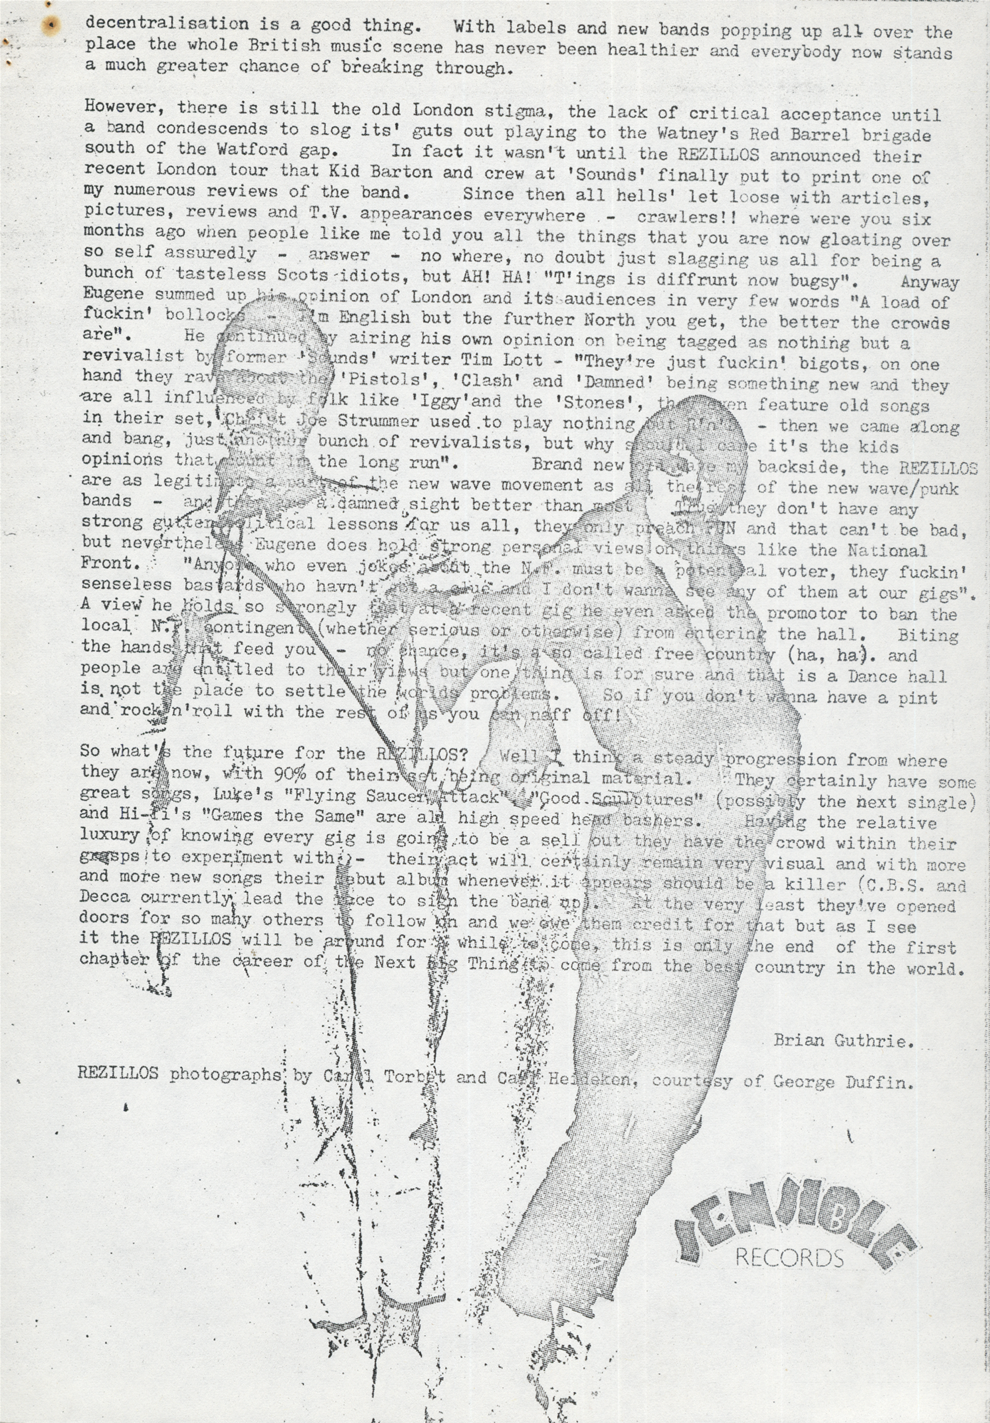 decentralisation is a good thing.   With labels and new bands popping up all over the
place the whole British music scene has never been healthier and everybody now stands
a much greater chance of breaking through.

However, there is still the old London stigma, the lack of critical acceptance until
a band condescends to slog its' guts out playing to the Watney's Red Barrel brigade
south of the Watford gap.     In fact it wasn't until the REZILLOS announced their
recent London tour that Kid Barton and crew at 'Sounds' finally put to print one of
my numerous reviews of the band.     Since then all hells' let loose with articles,
pictures, reviews and T.V. appearances everywhere - crawlers!! where were you six
months ago when people like me told you all the things that you are now gloating over
so self assuredly - answer - no where, no doubt just slagging us all for being a
bunch of tasteless Scots idiots, but AH! HA! "T'ings is diffrunt now bugsy".    Anyway
Eugene summed up his opinion of London and its audiences in very few words "A load of
fuckin' bollocks - I'm English but the further North you get, the better the crowds
are".     He continued by airing his own opinion on being tagged as nothing but a
revivalist by former 'Sounds' writer Tim Lott - "They're just fuckin' bigots, on one
hand they rave about the 'Pistols', 'Clash' and 'Damned' being something new and they
are all influenced by folk like 'Iggy'and the 'Stones', they even feature old songs
in their set, Christ Joe Strummer used to play nothing but R'n'B - then we came along
and bang, just another bunch of revivalists, but why should I care it's the kids
opinions that count in the long run".       Brand new old wave my backside, the REZILLOS
are as legitimate a part of the new wave movement as all the rest of the new wave/punk
bands - and they are a damned sight better than most.   True they don't have any
strong gutter political lessons for us all, they only preach FUN and that can't be bad,
but nevertheless Eugene does hold strong personal views on things like the National
Front.    "Anyone who even jokes about the N.F. must be a potential voter, they fuckin'
senseless bastards who havn't got a clue and I don't wanna see any of them at our gigs".
A view he holds so strongly that at a recent gig he even asked the promotor to ban the
local N.F. contingent (whether serious or otherwise) from entering the hall.   Biting
the hands that feed you - no chance, it's a so called free country (ha, ha). and
people are entitled to their views but one thing is for sure and that is a Dance hall
is not the place to settle the worlds problems.    So if you don't wanna have a pint
and rock'n'roll with the rest of us you can naff off!

So what's the future for the REZILLOS?   Well I think a steady progression from where
they are now, with 90% of their set being original material.    They certainly have some
great songs, Luke's "Flying Saucer Attack", "Good Sculptures" (possibly the next single)
and Hi-fi's "Games the Same" are all high speed head bashers.    Having the relative
luxury of knowing every gig is going to be a sell out they have the crowd within their
grasps to experiment with - their act will certainly remain very visual and with more
and more new songs their debut album whenever it appears should be a killer (C.B.S. and
Decca currently lead the race to sign the band up).   At the very least they've opened
doors for so many others to follow on and we owe them credit for that but as I see
it the REZILLOS will be around for a while to come, this is only the end of the first
chapter of the career of the Next Big Thing to come from the best country in the world.

Brian Guthrie.

REZILLOS photographs by Carol Torbet and Carl Heideken, courtesy of George Duffin.

SENSIBLE
RECORDS